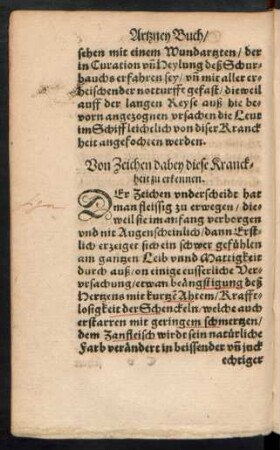 Artzney Buch/
sehen mit einem Wundartzten/ der
in Curation vñ Heylung deß Schur-
bauchs erfahren sey/ vñ mit aller er-
heischender notturfft gefast/ dieweil
auff der langen Reyse auß die be-
vorn angezognen vrsachen die Leut
im Schiff leichelich von diser Kranck
heit angefochten werden.
Von Zeichen dabey diese Kranck-
heit zu erkennen.
DEr Zeichen vnderscheidt hat
man fleissig zu erwegen/ die-
weil sie im anfang verborgen
vnd nit Augenscheinlich/ dann Erst-
lich erzeiget sich ein schwer gefühlen
am gantzen Leib vnnd Mattigkeit
durch auß/ on einige eusserliche Ver-
vrsachung/ etwan beängstigung deß
Hertzens mit kurtzẽ Ahtem/ Krafft-
losigkeit der Schenckeln/ welche auch
erstarren mit geringem schmertzen/
dem Zanfleisch wirdt sein natürliche
Farb verändert in beissender vñ juck
echtiger